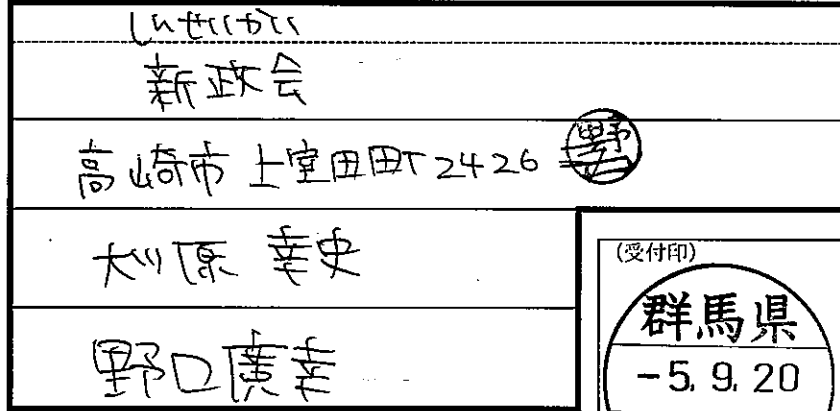 しんせいかい
新政会
高崎市上室田町2426
原 幸史
野口廣幸
(受付印)
群馬県
-5.9.20